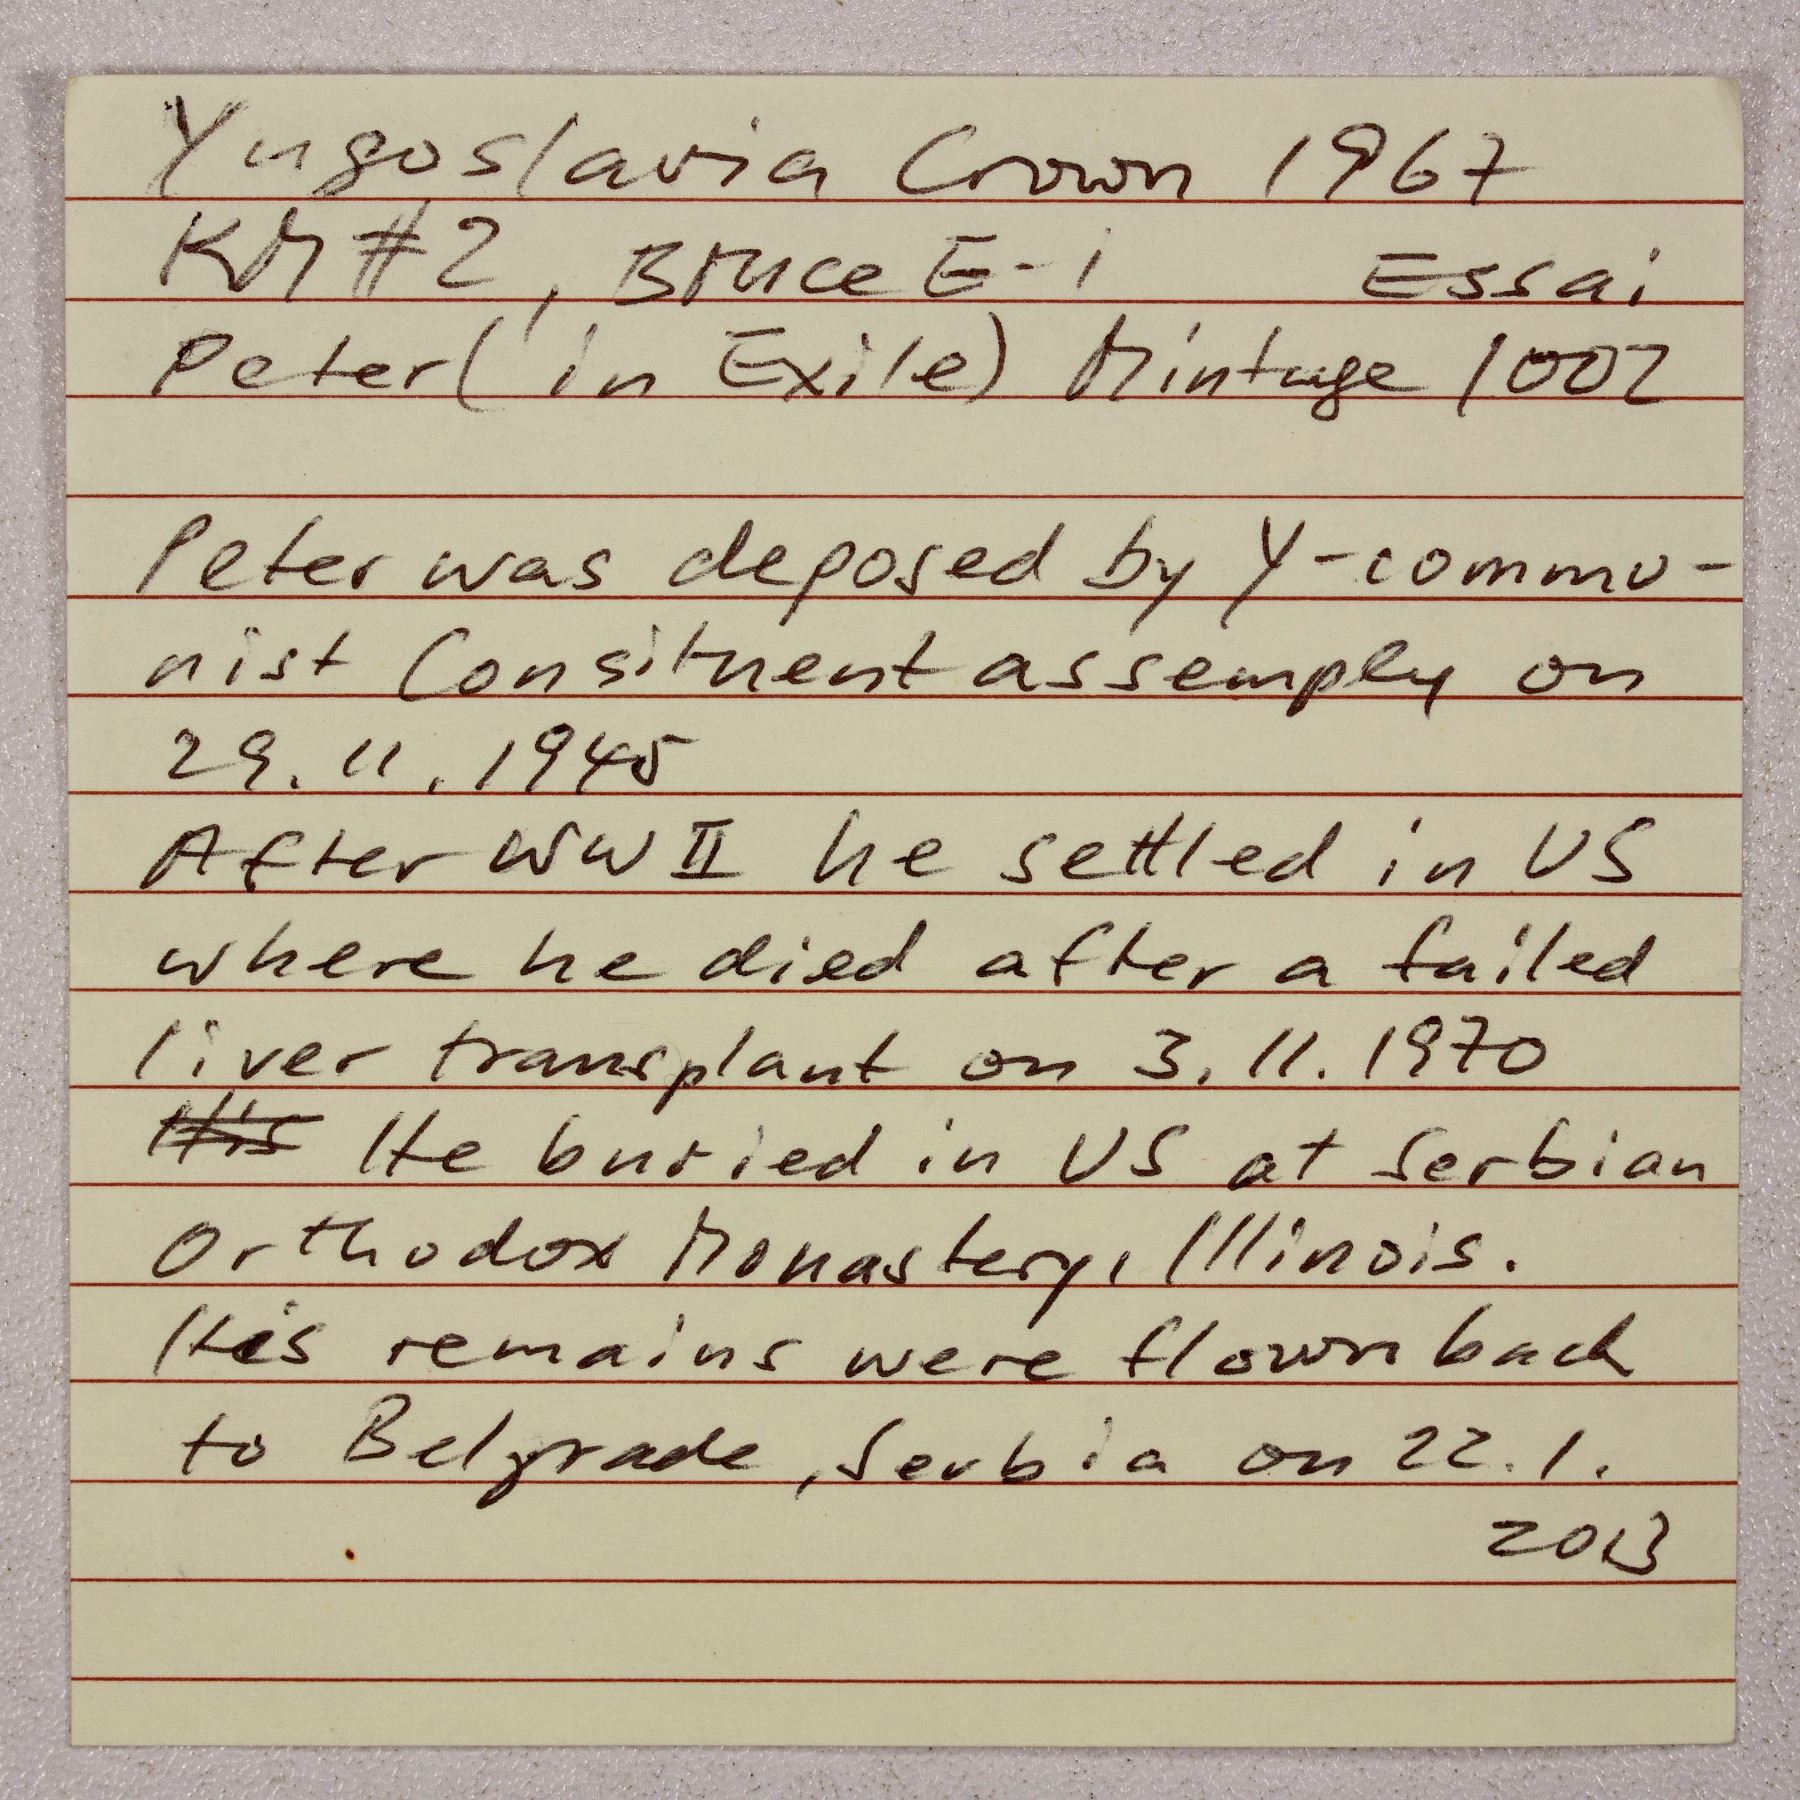 Yugoslavia Crown 1967
KM #2, Bruce E-1 Essai
Peter (in Exile) Mintage 1002
Peter was deposed by Y-commu-
nist Consituent assemply on
29.11.1945
After WW II he settled in US
where he died after a failed
liver transplant on 3.11.1970
His He buried in US at Serbian
Orthodox Monastery, Illinois.
His remains were flown back
to Belgrade, Serbia on 22.1.
2013